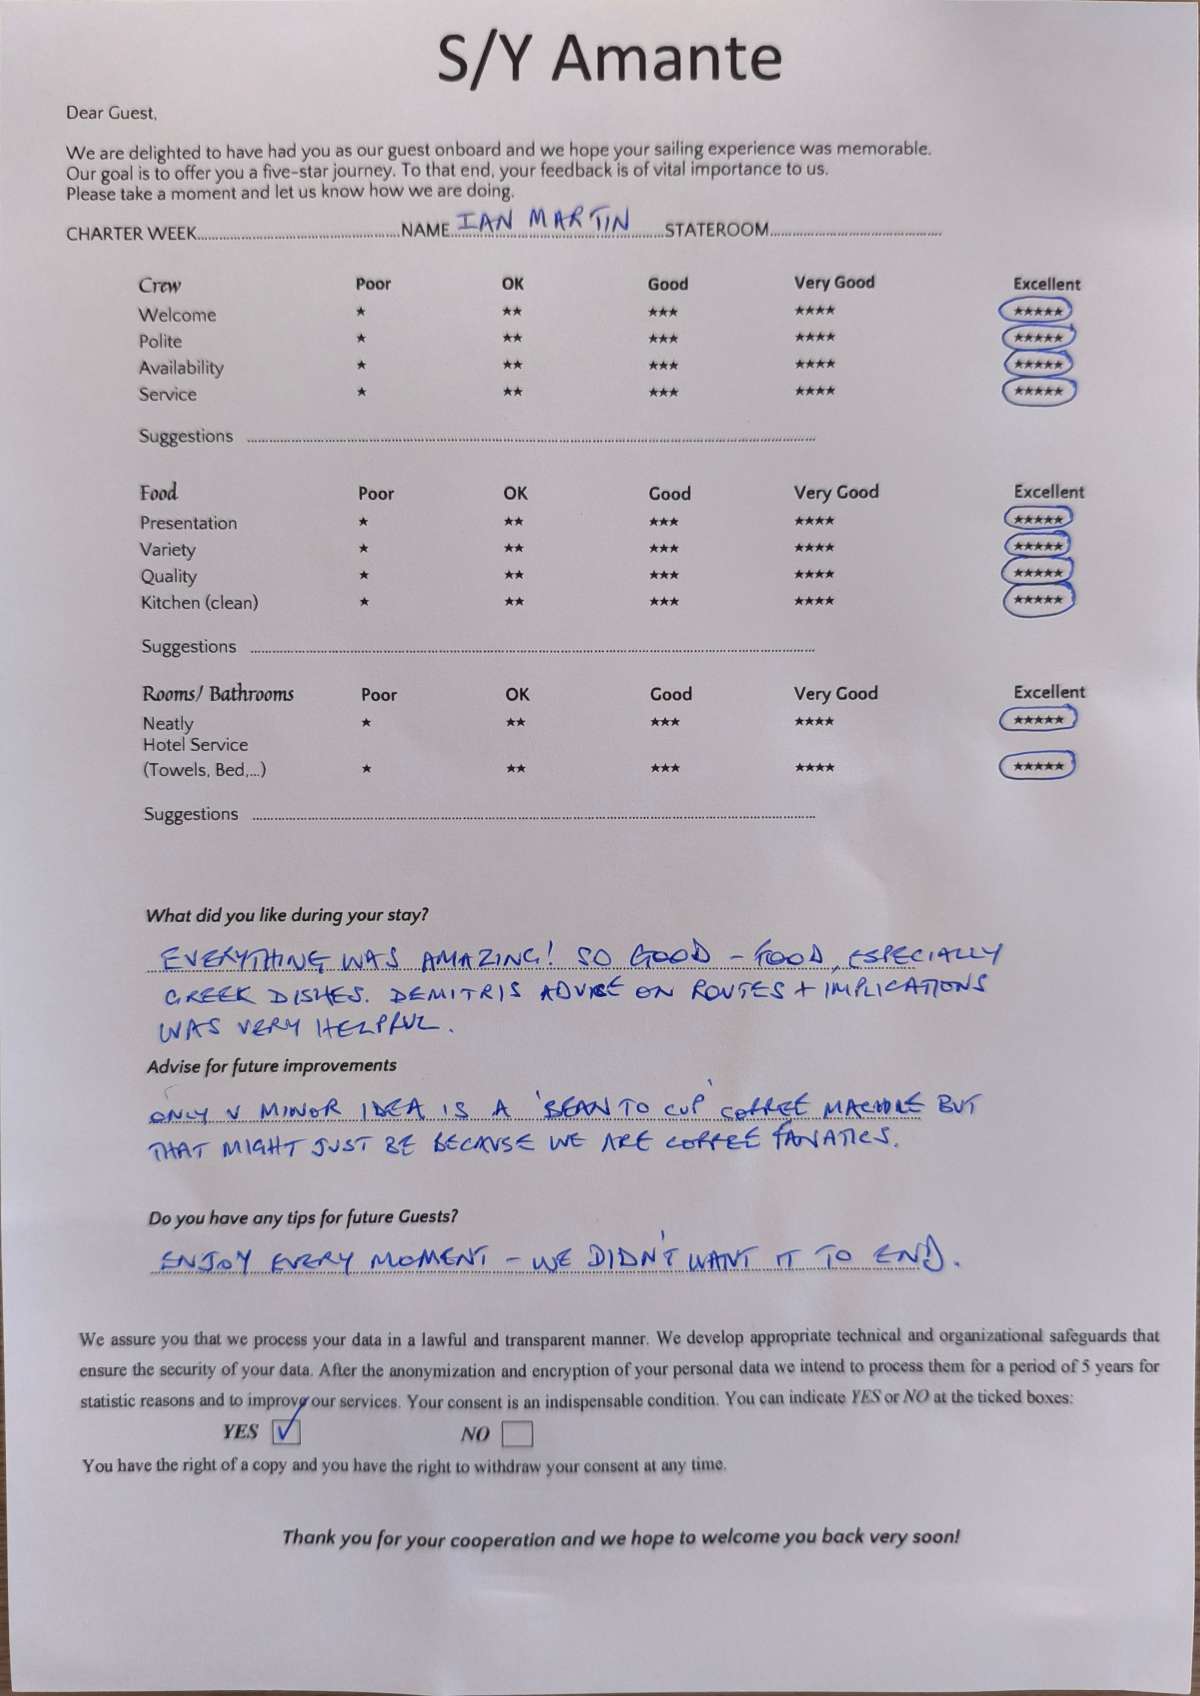 S/Y Amante
Dear Guest,
We are delighted to have had you as our guest onboard and we hope your sailing experience was memorable.
Our goal is to offer you a five-star journey. To that end, your feedback is of vital importance to us.
Please take a moment and let us know how we are doing.
CHARTER WEEK..........NAME IAN MARTIN ..........STATEROOM..........
Crew Poor OK Good Very Good Excellent
Welcome ★ ★★ ★★★ ★★★★ ★★★★★
Polite ★ ★★ ★★★ ★★★★ ★★★★★
Availability ★ ★★ ★★★ ★★★★ ★★★★★
Service ★ ★★ ★★★ ★★★★ ★★★★★
Suggestions ..........
Food Poor OK Good Very Good Excellent
Presentation ★ ★★ ★★★ ★★★★ ★★★★★
Variety ★ ★★ ★★★ ★★★★ ★★★★★
Quality ★ ★★ ★★★ ★★★★ ★★★★★
Kitchen (clean) ★ ★★ ★★★ ★★★★ ★★★★★
Suggestions ..........
Rooms/ Bathrooms Poor OK Good Very Good Excellent
Neatly ★ ★★ ★★★ ★★★★ ★★★★★
Hotel Service
(Towels, Bed,...) ★ ★★ ★★★ ★★★★ ★★★★★
Suggestions ..........
What did you like during your stay?
EVERYTHING WAS AMAZING! SO GOOD - FOOD, ESPECIALLY
GREEK DISHES. DEMITRIS ADVISE ON ROUTES + IMPLICATIONS
WAS VERY HELPFUL.
Advise for future improvements
ONLY V MINOR IDEA IS A 'BEAN TO CUP' COFFEE MACHINE BUT
THAT MIGHT JUST BE BECAUSE WE ARE COFFEE FANATICS.
Do you have any tips for future Guests?
ENJOY EVERY MOMENT - WE DIDN'T WANT IT TO END.
We assure you that we process your data in a lawful and transparent manner. We develop appropriate technical and organizational safeguards that
ensure the security of your data. After the anonymization and encryption of your personal data we intend to process them for a period of 5 years for
statistic reasons and to improve our services. Your consent is an indispensable condition. You can indicate YES or NO at the ticked boxes:
YES ☑ NO ☐
You have the right of a copy and you have the right to withdraw your consent at any time.
Thank you for your cooperation and we hope to welcome you back very soon!